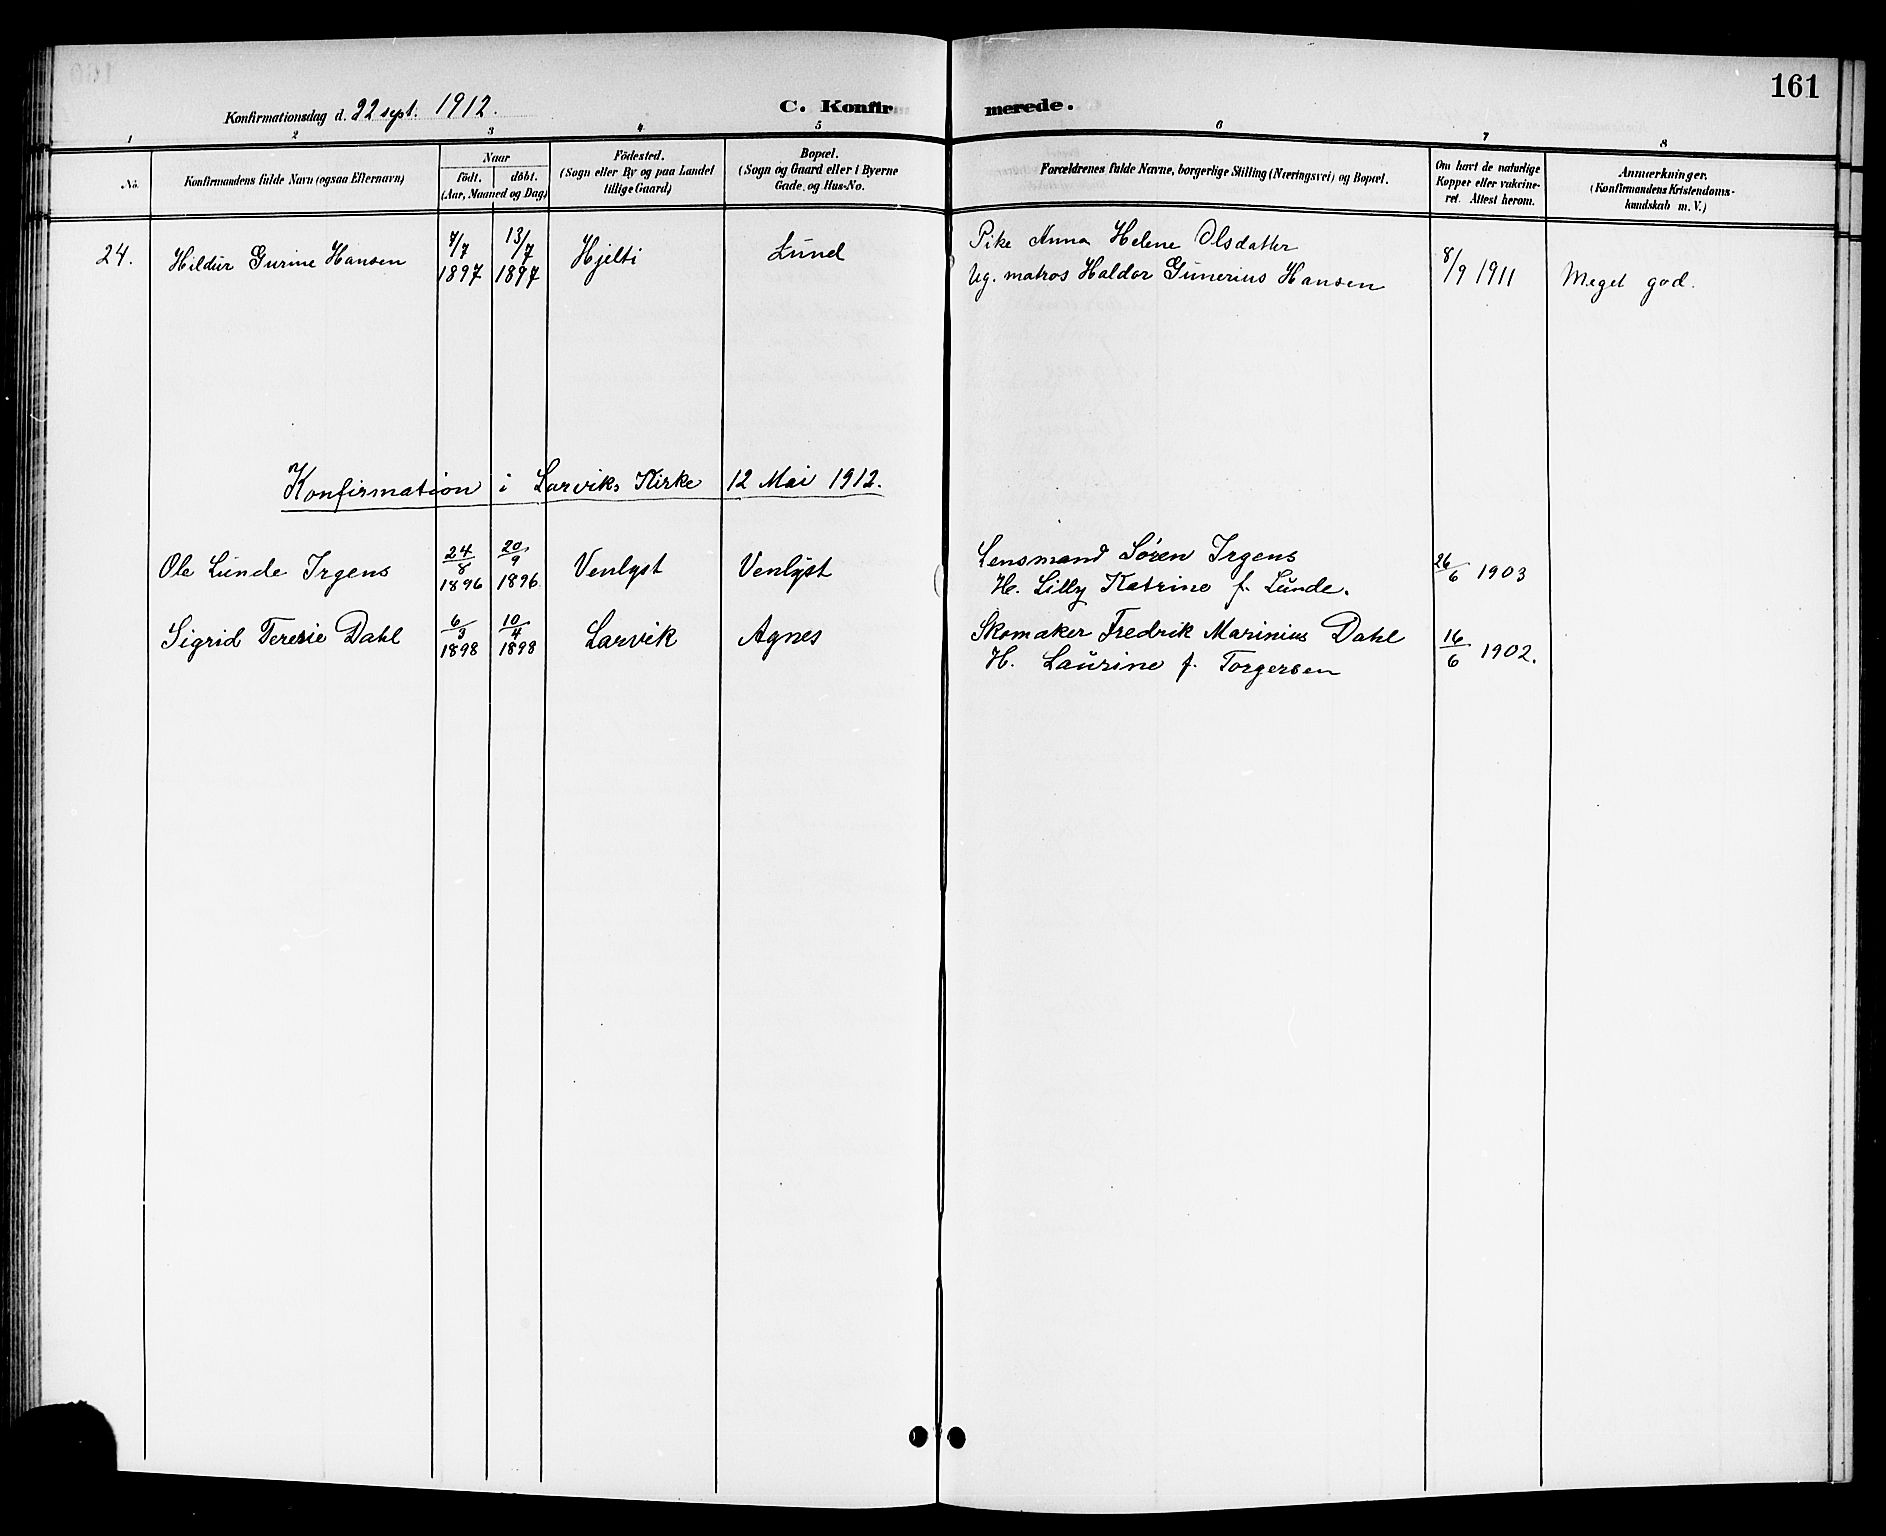 161
Konfirmationsdag d. 22 sept. 1912.
C. Konfirmerede.
1 2 3 4 5 6 7 8
No.
Konfirmandens fulde Navn (ogsaa Efternavn)
Naar
födt. döbt.
(Aar, Maaned og Dag)
Födested.
(Sogn eller By og paa Landet
tillige Gaard)
Bopæl.
(Sogn og Gaard eller i Byerne
Gade og Hus-No.
Forældrenes fulde Navne, borgerlige Stilling (Næringsvei) og Bopæl.
Om havt de naturlige
Kopper eller vakcine-
ret. Attest herom.
Anmærkninger.
(Konfirmandens Kristendoms-
kundskab m. V.)
24. Hildur Gurine Hansen 7/7 1897 13/7 1897 Hjelti Lund
Pike Anna Helene Olsdatter
Ug. matros Haldor Gunerius Hansen
8/9 1911 Meget god.
Konfirmation i Larviks Kirke 12 Mai 1912.
Ole Lunde Irgens 24/8 1896 20/9 1896. Venlyst Venlyst
Lensmand Søren Irgens
H. Lilly Katrine f. Lunde.
26/6 1903
Sigrid Teresie Dahl 6/3 1898 10/4 1898 Larvik Agnes
Skomaker Fredrik Marinius Dahl
H. Laurine f. Torgersen
16/6 1902.